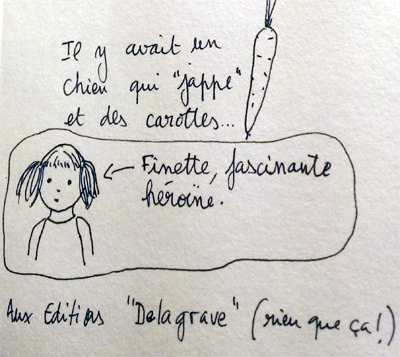 Il y avait un
chien qui "jappe"
et des carottes...
Finette, fascinante
héroïne.
Aux Editions "Delagrave" (rien que ça!)